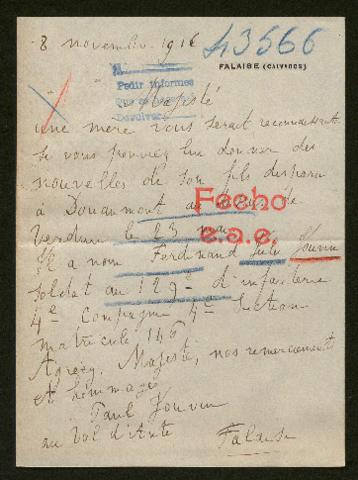 8 novembre 1916
43566
FALAISE (CALVADOS)
Pedir informes
Devolver
Majesté
une mère vous serait reconnaissante
si vous pouviez lui donner des
nouvelles de son fils disparu
à Douaumont au de
Verdun le 23 mai
Fecho
e.a.e.
Il a nom Ferdinand Jules Jouvin
soldat au 129e d'infanterie
4e Compagnie 4e Section
matricule 146
Agréez, Majesté, nos remerciements
et hommages
Paul Jouvin
au Val d'Ante Falaise